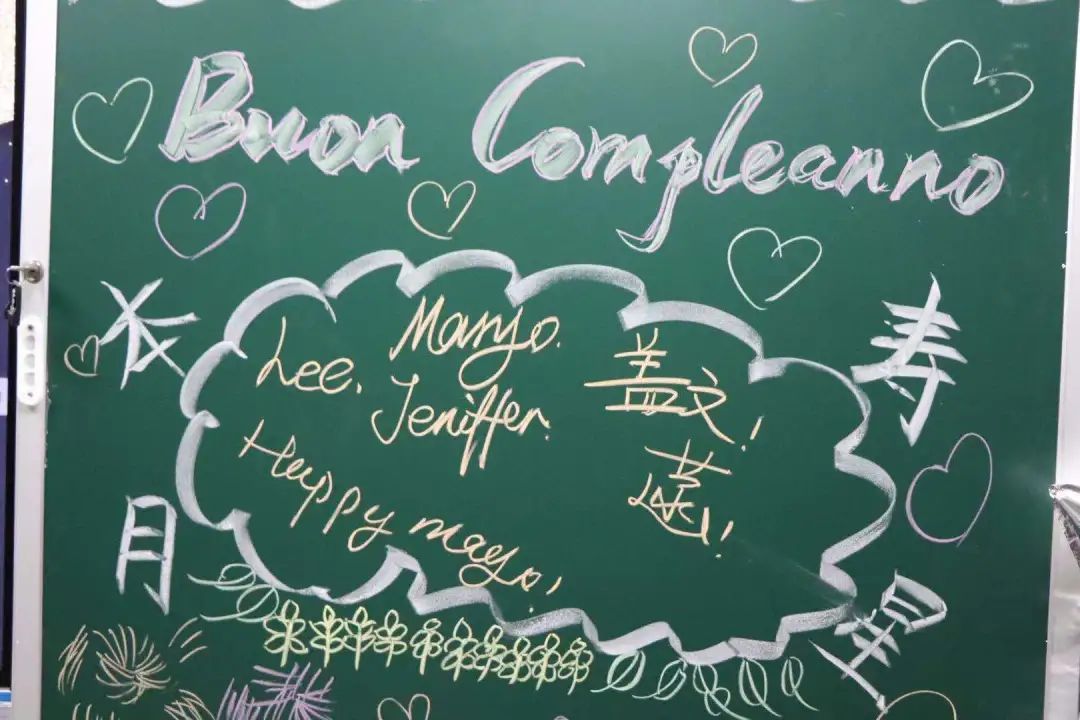 Buon Compleanno
本月
寿星
Manjo.
Lee.
Jeniffer.
盖文!
Happy mayo!